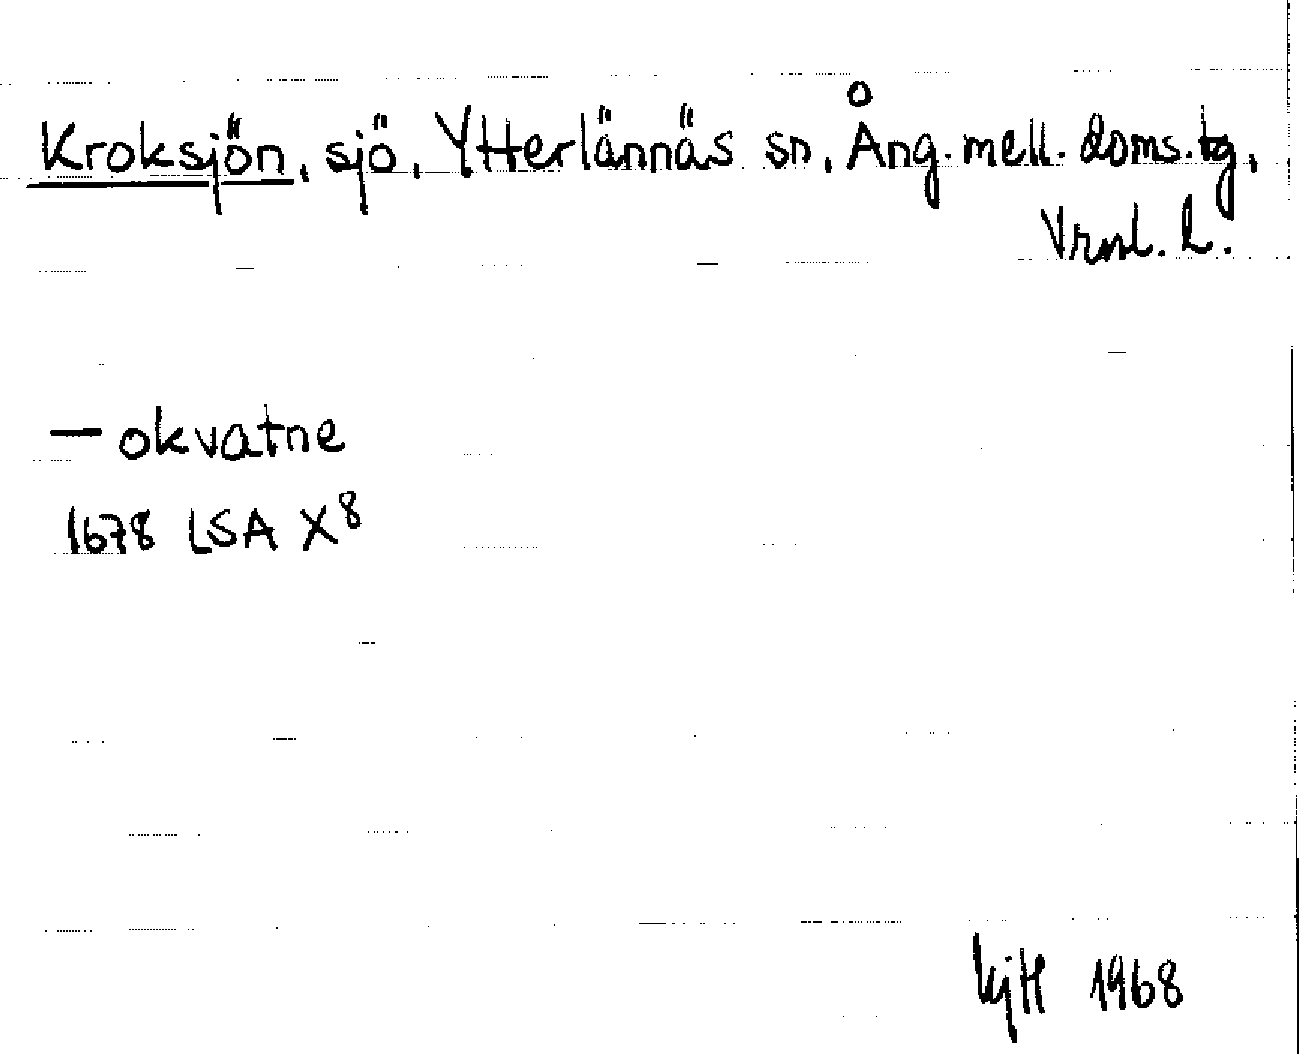 Kroksjön, sjö, Ytterlännäs sn, Ång. mell. doms.tg,
Vrnl. l.
— okvatne
1678 LSA X⁸
KjH 1968